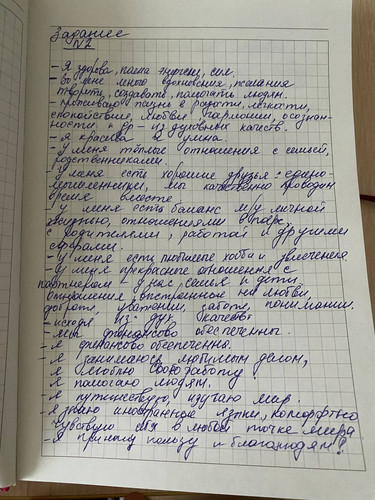 Задание
№2
- Я здорова, полна энергии, сил.
- Во мне много вдохновения, желания
творить, создавать, помогать людям.
- проживаю жизнь в радости, легкости,
спокойствие, любви, гармонии, осознан-
ности и др - из духовных качеств.
- я красива и умна.
- у меня тёплые отношения с семьей,
родственниками.
- У меня есть хорошие друзья - едино-
мышленники, мы качественно проводим
время вместе.
- у меня есть баланс м/у личной
жизнью, отношениями в паре,
с родителями, работой и другими
сферами.
- у меня есть любимые хобби и увлечения
- у меня прекрасные отношения с
партнером - у нас семья и дети.
отношения выстроенные на любви,
доброте, уважении, заботе, понимании.
- исходя из дух. качеств
- финансово обеспечены.
- я финансово обеспечена.
- я занимаюсь любимым делом,
- я люблю свою работу!
- Я помогаю людям.
- я путешествую, изучаю мир.
- я знаю иностранные языки, комфортно
чувствую себя в любой точке мира
- Я приношу пользу и благо людям!